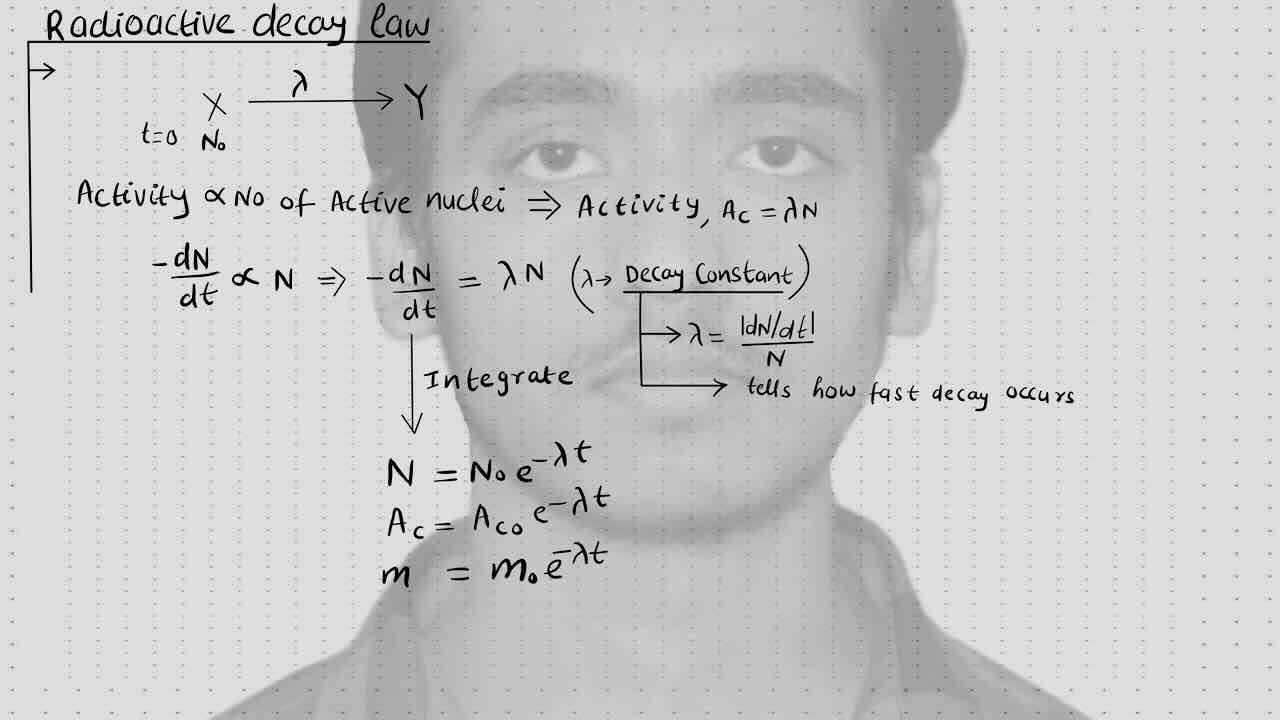 Radioactive decay law
X λ→ Y
t=0 N₀
Activity ∝ No of Active nuclei ⇒ Activity, Ac = λN
-dN/dt ∝ N ⇒ -dN/dt = λN (λ→ Decay Constant)
→ λ = |dN/dt|/N
Integrate
→ tells how fast decay occurs
N = N₀e^-λt
Ac = Ac₀ e^-λt
m = m₀e^-λt